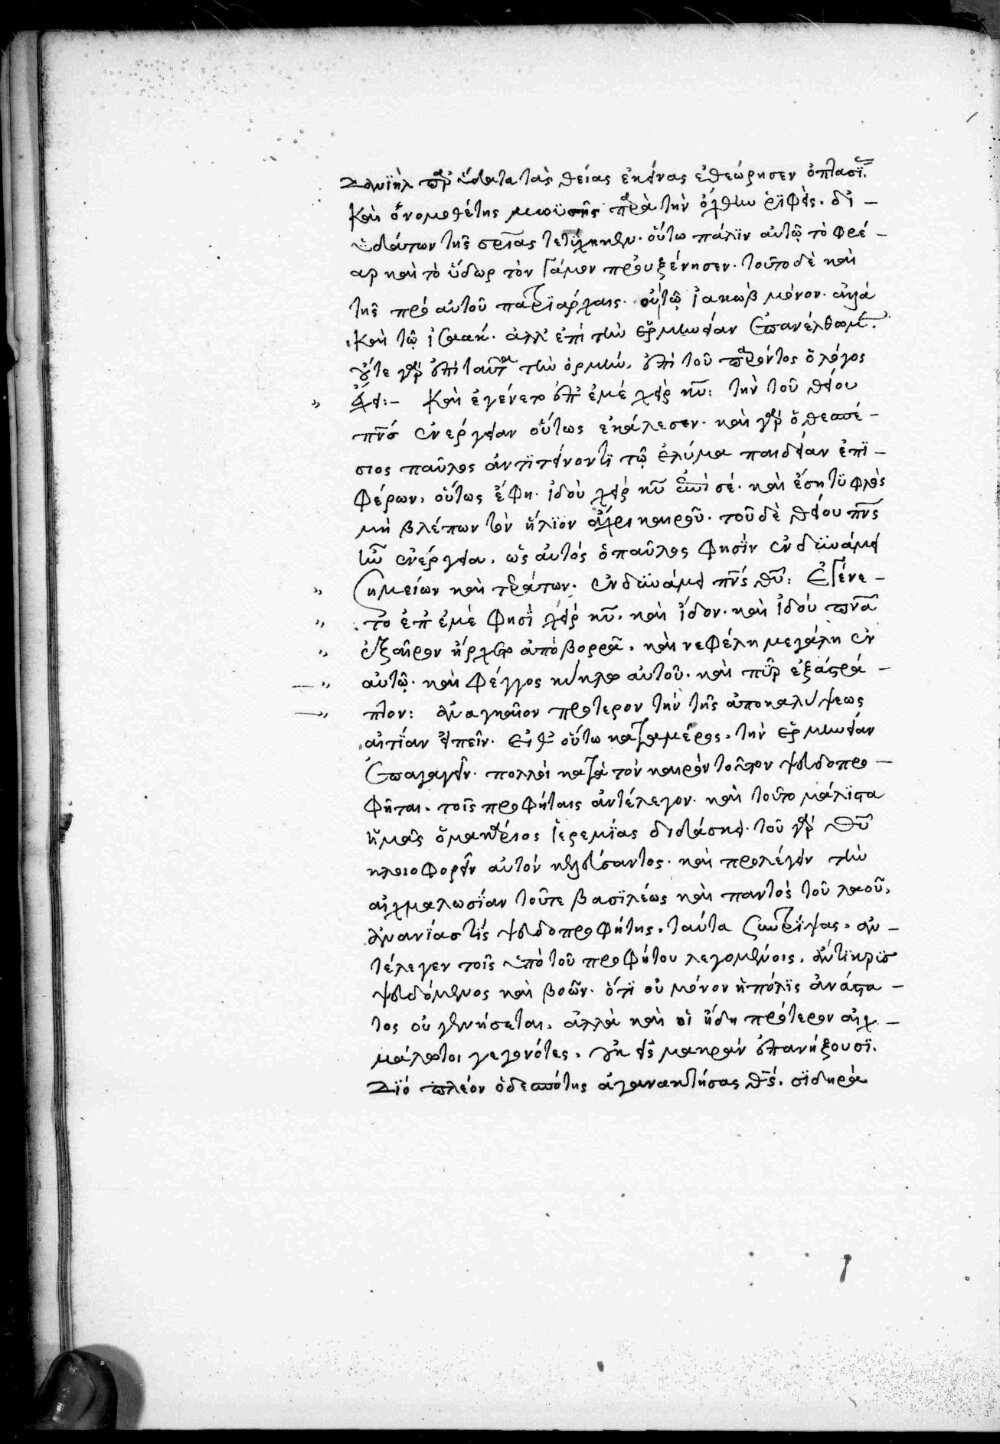 Δανιὴλ παρ' ὕδατα τὰς θείας ἐκείνας ἐθεώρησεν ὀπτασί.
καὶ ὁ νομοθέτης μωϋσῆς παρὰ τὴν ὄχθην ῥιφεὶς. δι –
ὑδάτων τῆς σρίας τετύχηκεν. οὕτω πάλιν αὐτῷ τὸ φρέ –
αρ καὶ τὸ ὕδωρ τὸν γάμον προυξένησεν. τοῦτο δὲ καὶ
τῆς πρὸ αὐτοῦ πατριάρχαις. οὐ τῷ ἰακὼβ μόνον. ἀλλὰ
καὶ τῷ ἰσαάκ. ἀλλ' ἐπὶ τὴν ἑρμηνείαν ἐπανέλθωμεν.
οὔτε γὰρ ἐπὶ ταύτην τὴν ὁρμήν, ἐπὶ τοῦ παρόντος ὁ λόγος
» :– Καὶ ἐγένετο ἐπ' ἐμὲ χεὶρ κυ: τὴν τοῦ θείου
πνς ἐνέργειαν οὕτως ἐκάλεσεν. καὶ γὰρ ὁ θεσπέ –
σιος παῦλος ἀντιτείνοντι τῷ ἐλύμα παιδείαν ἐπι –
φέρων, οὕτως ἔφη. ἰδοὺ χεὶρ κυ ἐπὶ σέ. καὶ ἔσῃ τυφλὸς
μὴ βλέπων τὸν ἥλιον ἄχρι καιροῦ. τοῦ δὲ θείου πνς
ἦν ἐνέργεια, ὡς αὐτὸς ὁ παῦλος φησὶν ἐν δυνάμει
» σημείων καὶ τεράτων. ἐν δυνάμει πνς θυ: Ἐγένε –
» το ἐπ' ἐμὲ φησὶ χεὶρ κυ. καὶ ἴδον. καὶ ἰδοὺ πνα
» ἐξαῖρον ἤρχετο ἀπὸ βορρᾶ. καὶ νεφέλη μεγάλη ἐν
—» αὐτῷ. καὶ φέγγος κύκλω αὐτοῦ. καὶ πῦρ ἐξαστρά –
—» πτον: ἀναγκαῖον πρότερον τὴν τῆς ἀποκαλύψεως
αἰτίαν εἰπεῖν. εἶθ' οὕτω κατὰ μέρος. τὴν ἑρμηνείαν
ἐπαγαγεῖν. πολλοὶ κατὰ τὸν καιρὸν τοῦτον ψευδοπρο –
φῆται. τοῖς προφήταις ἀντέλεγον. καὶ τοῦτο μάλιστα
ἡμᾶς ὁ μακάριος ἱερεμίας διδάσκει. τοῦ γὰρ θυ
κλοιοφορεῖν αὐτὸν κελεύσαντος. καὶ προλέγειν τὴν
αἰχμαλωσίαν τοῦτε βασιλέως καὶ παντὸς τοῦ λαοῦ,
ἀνανίας τίς ψευδοπροφήτης. ταῦτα συντρίψας. ἀν –
τέλεγεν τοῖς ὑπὸ τοῦ προφήτου λεγομένοις, ἄντικρυς
ψευδόμενος καὶ βοῶν. ὅτι οὐ μόνον ἡ πόλις ἀνάστα –
τος οὐ γενήσεται, ἀλλὰ καὶ οἱ ἤδη πρότερον αἰχ –
μάλωτοι γεγονότες, οὐκ εἰς μακρὰν ἐπανήξουσι.
Διὸ πλέον ὁ δεσπότης ἀγανακτήσας θς. σιδηρᾶ